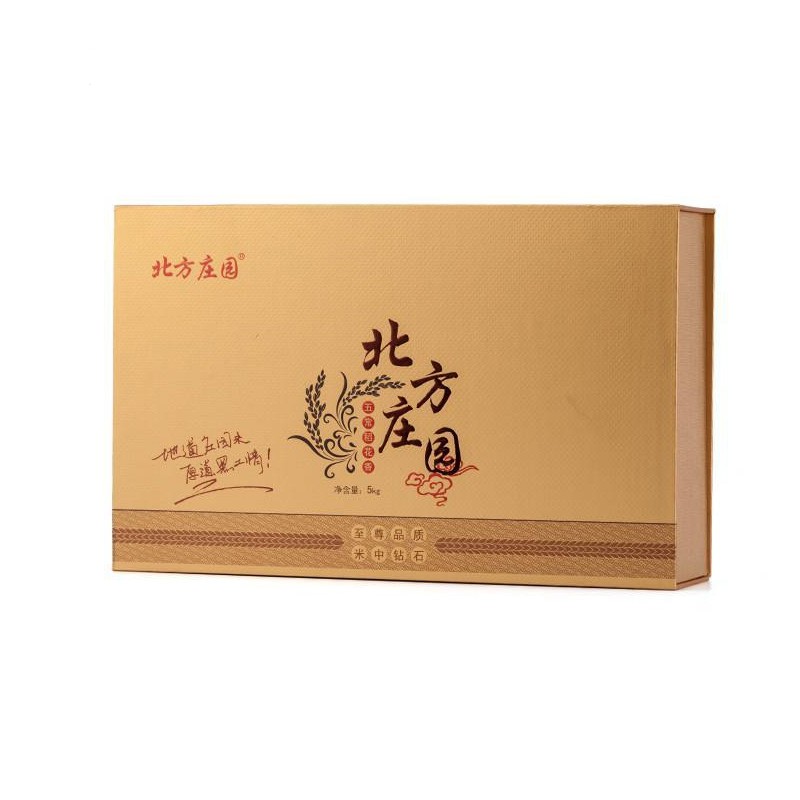 北方庄园®
北方庄园
五常稻花香
地道庄园米
厚道黑土情!
净含量：5kg
至尊品质
米中钻石